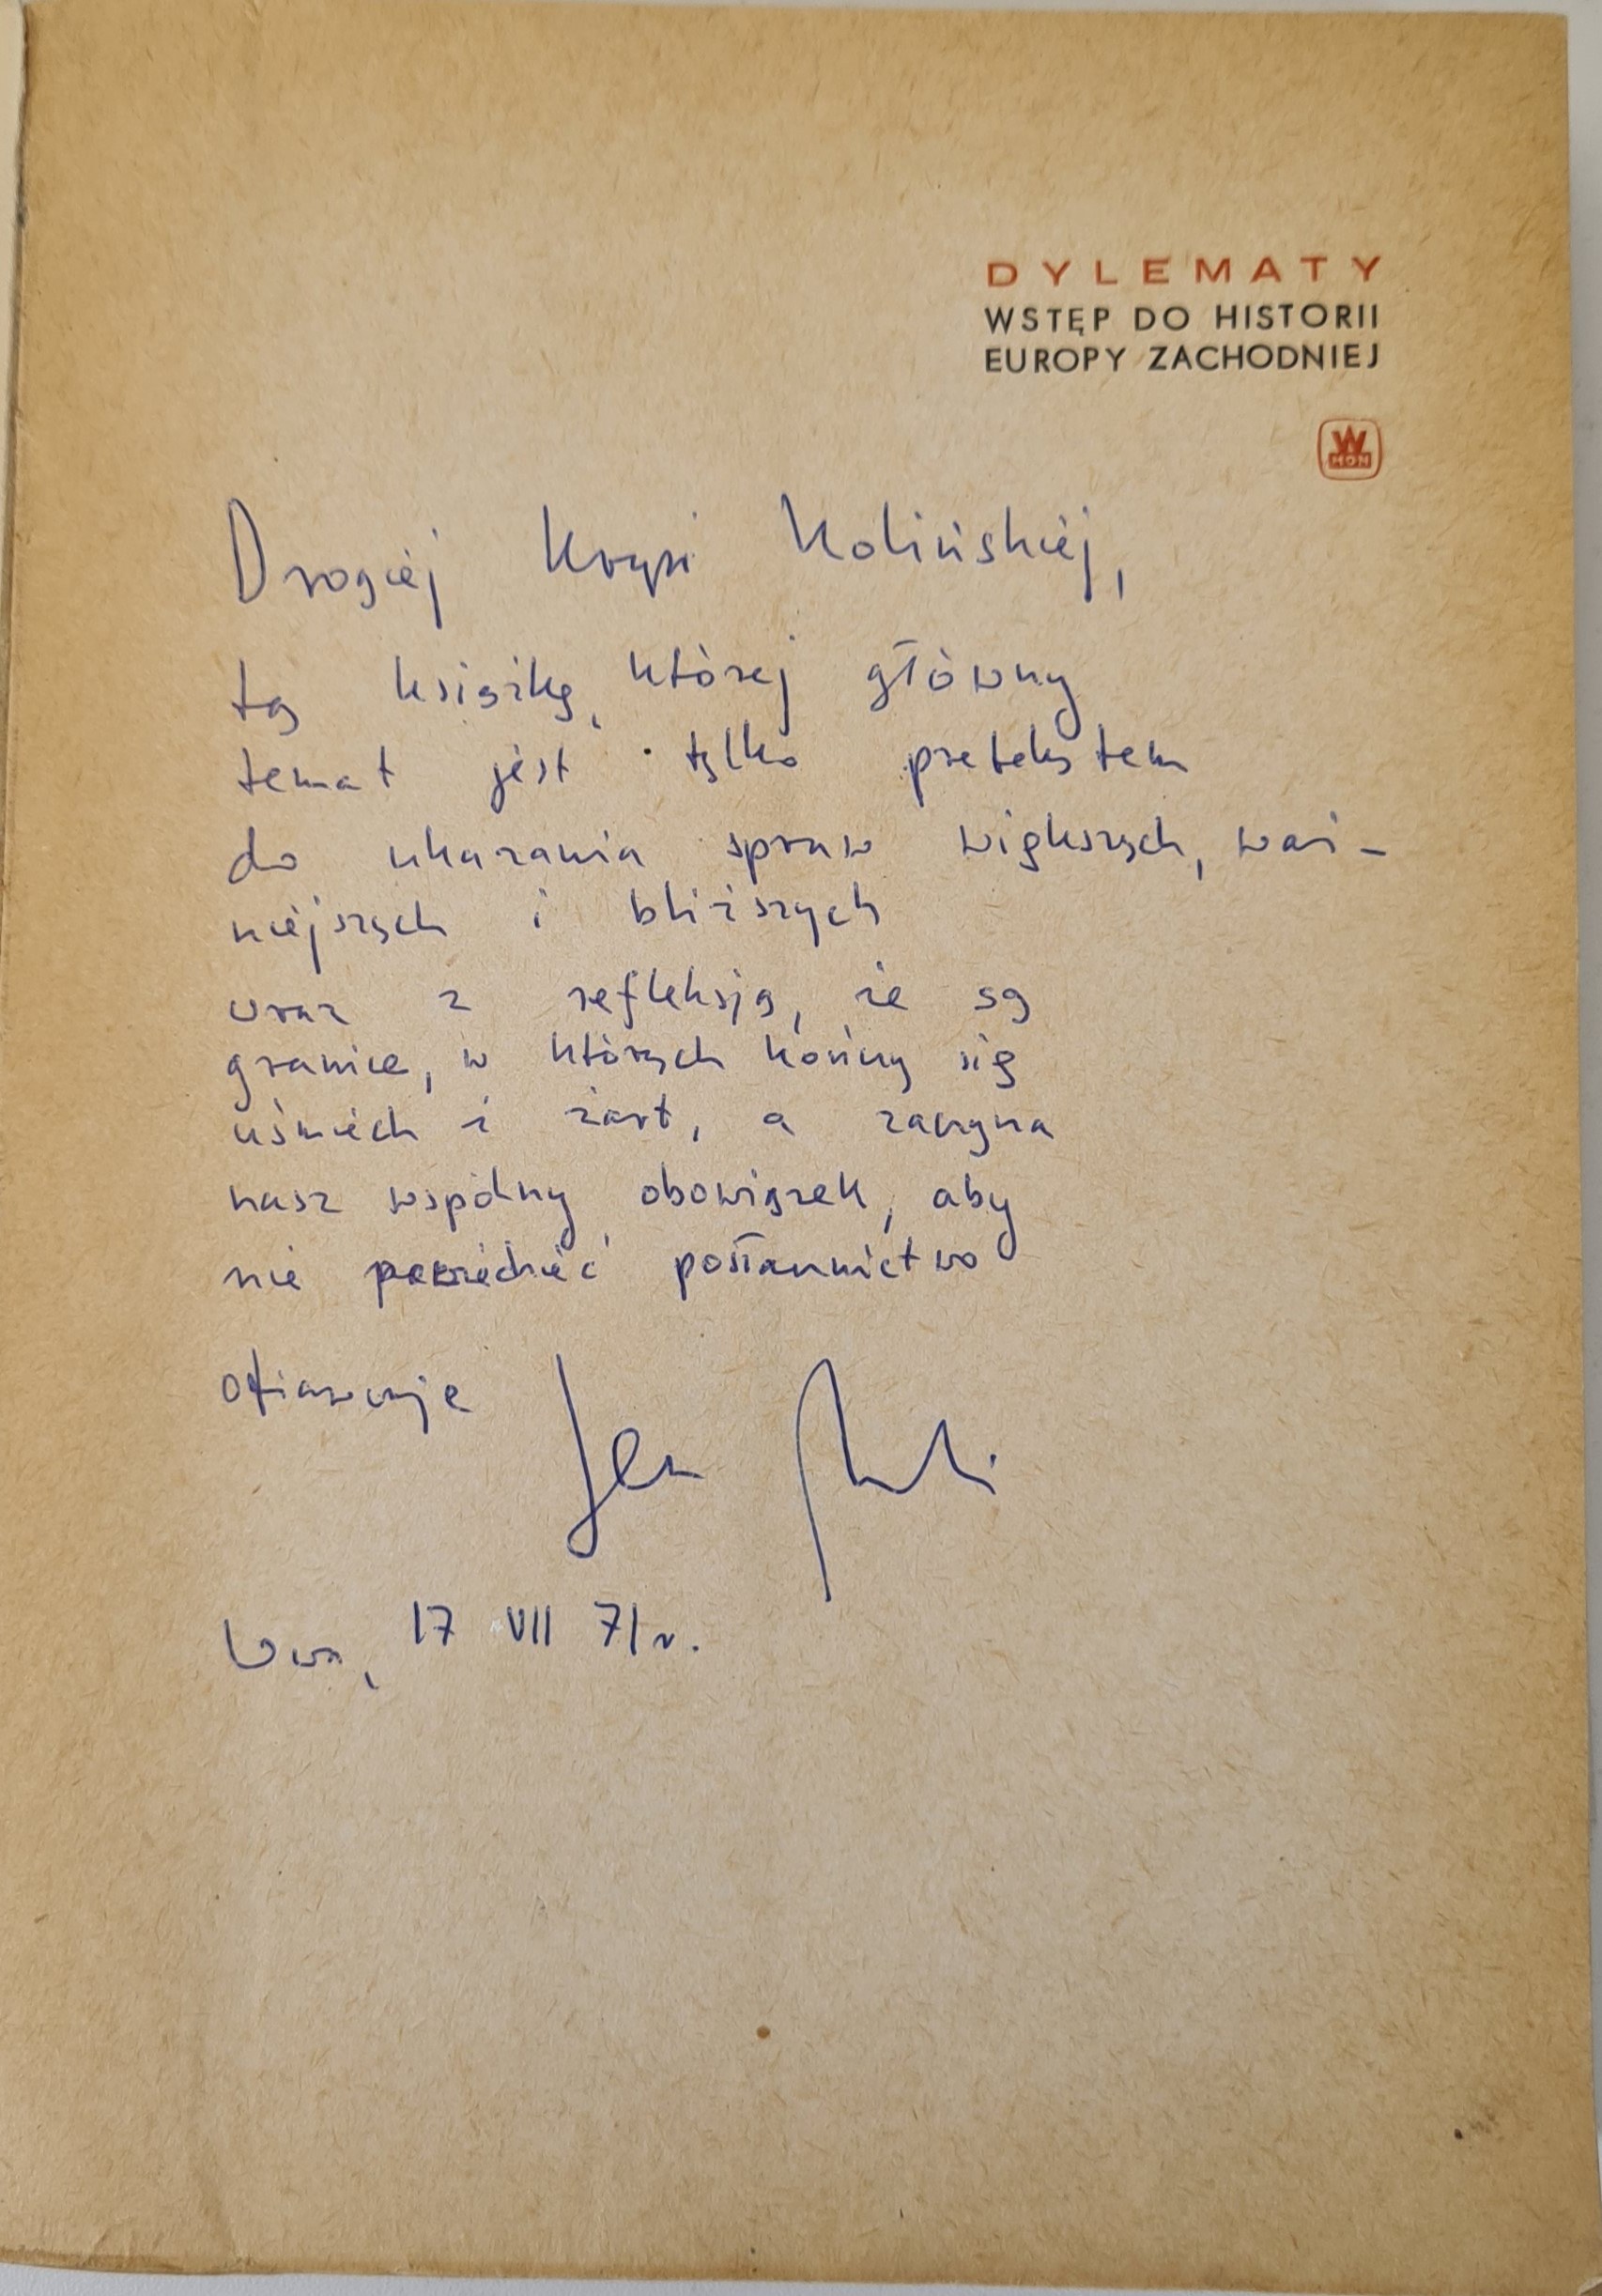 DYLEMATY
WSTĘP DO HISTORII
EUROPY ZACHODNIEJ
W
MON
Drogiej Krysi Kolińskiej,
tę książkę, której główny
temat jest tylko pretekstem
do ukazania spraw większych, waż-
niejszych i bliższych
oraz z refleksją, że są
granice, w których kończy się
uśmiech i żart, a zaczyna
nasz wspólny obowiązek, aby
nie posłannictwo
ofiarowuje Jan
17 VII 71 r.